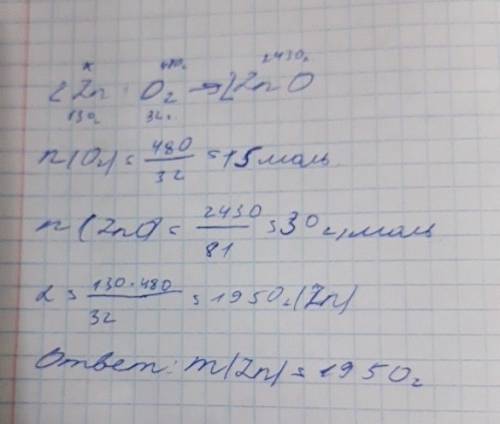 x 480г 2430г
2Zn + O2 → 2ZnO
130г 32г
n(O2) = 480/32 = 15 моль
n(ZnO) = 2430/81 = 30 г/моль
x = 130·480/32 = 1950г(Zn)
Ответ: m(Zn) = 1950г